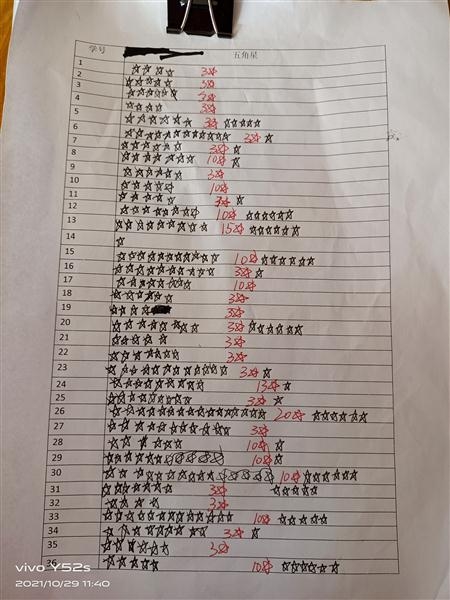 学号 五角星
1 3☆
2 3☆
3 3☆
4 3☆
5 3☆
6 3☆
7 3☆
8 10☆
9 3☆
10 10☆
11 3☆
12 10☆
13 15☆
14
15 10☆
16 3☆
17 10☆
18 3☆
19 3☆
20 3☆
21 3☆
22 3☆
23 3☆
24 13☆
25 3☆
26 20☆
27 3☆
28 10☆
29 10☆
30 10☆
31 3☆
32 3☆
33 10☆
34 3☆
35 3☆
36 10☆
vivo Y52s
2021/10/29 11:40